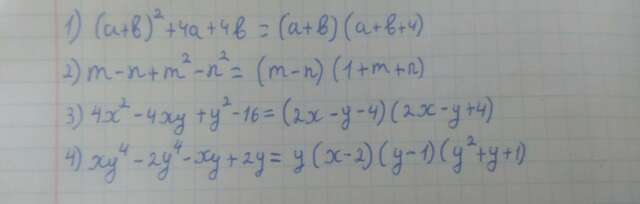 1) (a+b)² + 4a + 4b = (a+b)(a+b+4)
2) m - n + m² - n² = (m-n)(1+m+n)
3) 4x² - 4xy + y² - 16 = (2x - y - 4)(2x - y + 4)
4) xy⁴ - 2y⁴ - xy + 2y = y(x-2)(y-1)(y²+y+1)